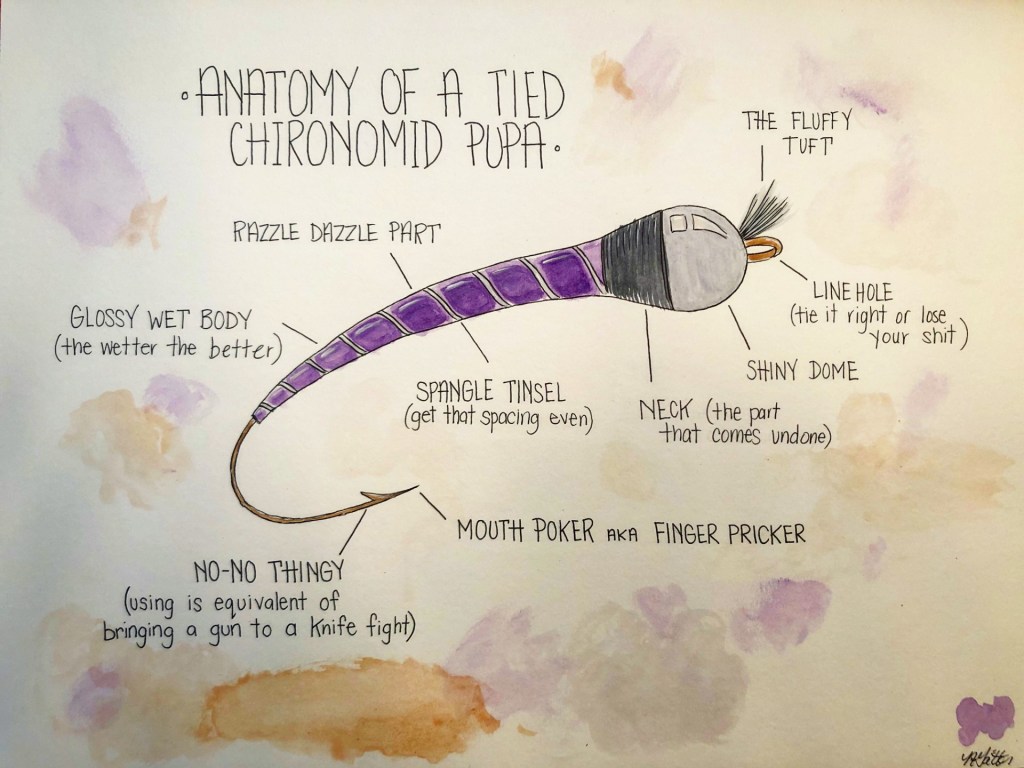 ·ANATOMY OF A TIED
CHIRONOMID PUPA·
THE FLUFFY
TUFT
RAZZLE DAZZLE PART
LINE HOLE
(tie it right or lose
your shit)
GLOSSY WET BODY
(the wetter the better)
SHINY DOME
SPANGLE TINSEL
(get that spacing even)
NECK (the part
that comes undone)
MOUTH POKER AKA FINGER PRICKER
NO-NO THINGY
(using is equivalent of
bringing a gun to a knife fight)